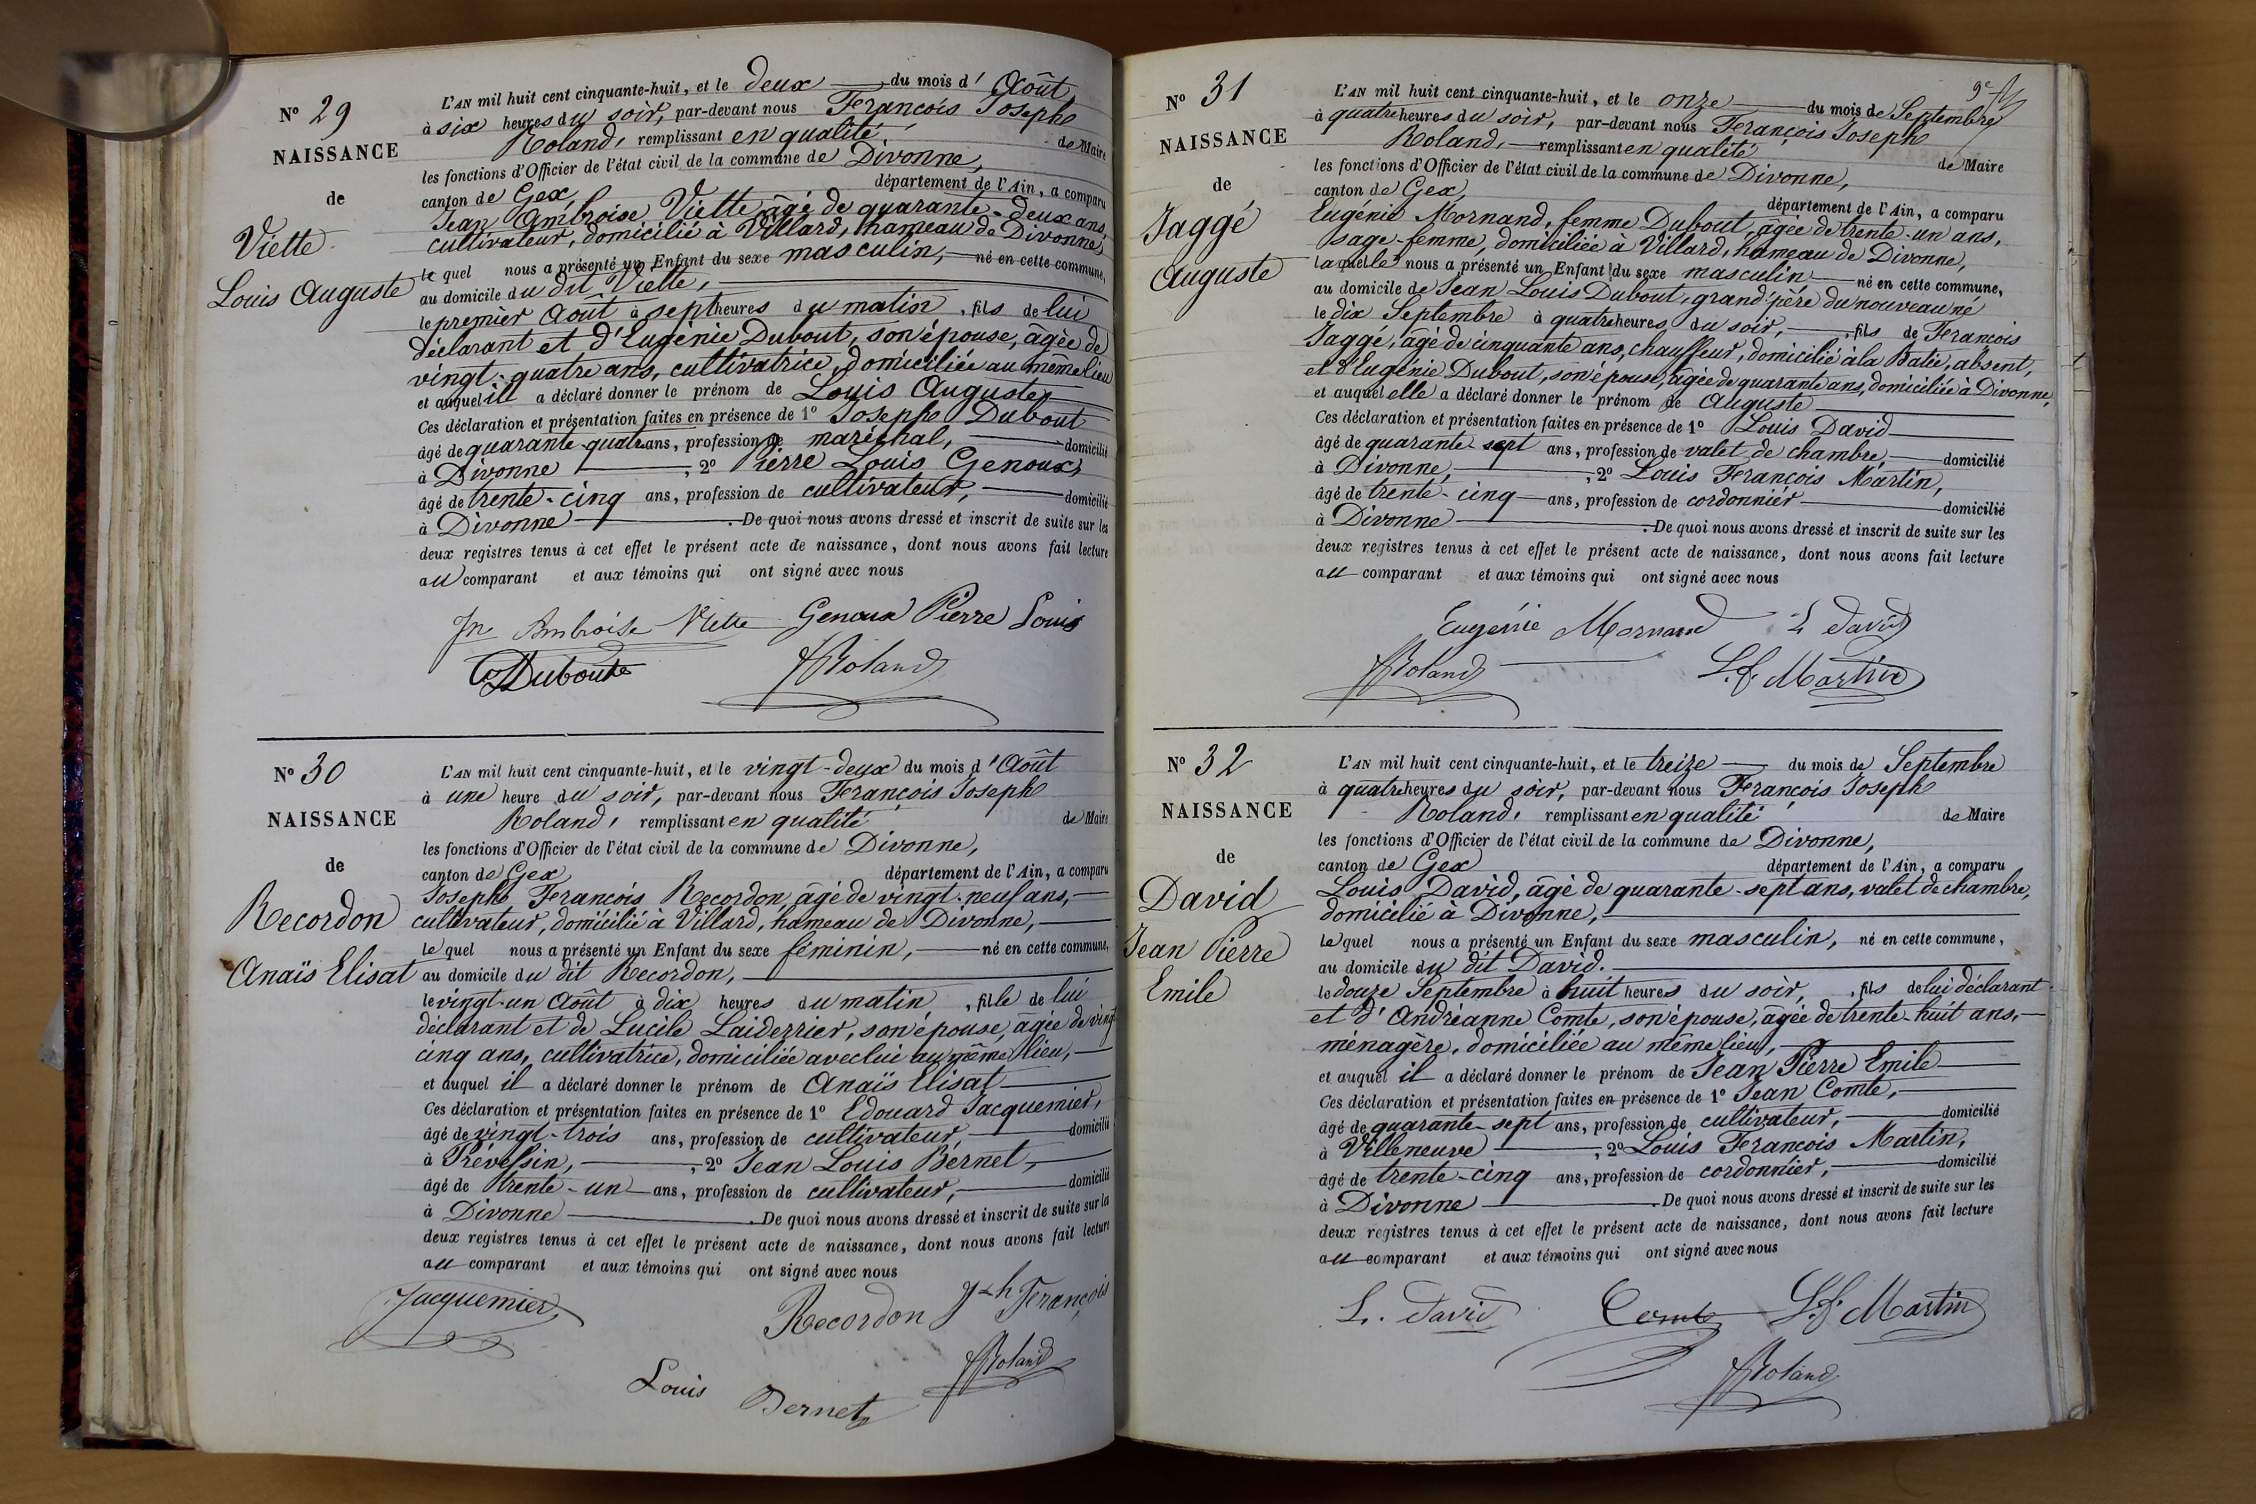 N° 29
NAISSANCE
de
Viette
Louis Auguste
L'AN mil huit cent cinquante-huit, et le deux du mois d'Août
à six heures du soir, par-devant nous François Joseph
Roland, remplissant en qualité de Maire
les fonctions d'Officier de l'état civil de la commune de Divonne,
canton de Gex, département de l'Ain, a comparu
Jean Ambroise Viette âgé de quarante-deux ans,
cultivateur, domicilié à Villard, hameau de Divonne,
le quel nous a présenté un Enfant du sexe masculin, né en cette commune,
au domicile du dit Viette,
le premier Août à sept heures du matin, fils de lui
déclarant et d'Eugénie Dubout, son épouse, âgée de
vingt-quatre ans, cultivatrice, domiciliée au même lieu
et auquel il a déclaré donner le prénom de Louis Auguste
Ces déclaration et présentation faites en présence de 1° Joseph Dubout
âgé de quarante-quatre ans, profession de maréchal, domicilié
à Divonne, 2° Pierre Louis Genoux,
âgé de trente-cinq ans, profession de cultivateur, domicilié
à Divonne. De quoi nous avons dressé et inscrit de suite sur les
deux registres tenus à cet effet le présent acte de naissance, dont nous avons fait lecture
au comparant et aux témoins qui ont signé avec nous
Jn Ambroise Viette Genoux Pierre Louis
Dubout Roland
N° 30
NAISSANCE
de
Recordon
Anaïs Elisat
L'AN mil huit cent cinquante-huit, et le vingt-deux du mois d'Août
à une heure du soir, par-devant nous François Joseph
Roland, remplissant en qualité de Maire
les fonctions d'Officier de l'état civil de la commune de Divonne,
canton de Gex, département de l'Ain, a comparu
Joseph François Recordon, âgé de vingt-neuf ans,
cultivateur, domicilié à Villard, hameau de Divonne,
le quel nous a présenté un Enfant du sexe féminin, né en cette commune,
au domicile du dit Recordon,
le vingt-un Août à dix heures du matin, fille de lui
déclarant et de Lucile Laiderrier, son épouse, âgée de vingt
cinq ans, cultivatrice, domiciliée avec lui au même lieu,
et auquel il a déclaré donner le prénom de Anaïs Elisat
Ces déclaration et présentation faites en présence de 1° Edouard Jacquemier,
âgé de vingt-trois ans, profession de cultivateur, domicilié
à Prévessin, 2° Jean Louis Bernet,
âgé de trente-un ans, profession de cultivateur, domicilié
à Divonne. De quoi nous avons dressé et inscrit de suite sur les
deux registres tenus à cet effet le présent acte de naissance, dont nous avons fait lecture
au comparant et aux témoins qui ont signé avec nous
Jacquemier Recordon Jph François
Roland
Louis Bernet
N° 31
NAISSANCE
de
Jaggé
Auguste
L'AN mil huit cent cinquante-huit, et le onze du mois de Septembre
à quatre heures du soir, par-devant nous François Joseph
Roland, remplissant en qualité de Maire
les fonctions d'Officier de l'état civil de la commune de Divonne,
canton de Gex, département de l'Ain, a comparu
Eugénie Mornand, femme Dubout, âgée de trente-un ans,
sage-femme, domiciliée à Villard, hameau de Divonne,
laquelle nous a présenté un Enfant du sexe masculin né en cette commune,
au domicile de Jean Louis Dubout, grand'père du nouveau né
le dix Septembre à quatre heures du soir, fils de François
Jaggé, âgé de cinquante ans, chauffeur, domicilié à la Batie, absent,
et d'Eugénie Dubout, son épouse, âgée de quarante ans, domiciliée à Divonne,
et auquel elle a déclaré donner le prénom de Auguste
Ces déclaration et présentation faites en présence de 1° Louis David
âgé de quarante-sept ans, profession de valet de chambre, domicilié
à Divonne, 2° Louis François Martin,
âgé de trente-cinq ans, profession de cordonnier domicilié
à Divonne. De quoi nous avons dressé et inscrit de suite sur les
deux registres tenus à cet effet le présent acte de naissance, dont nous avons fait lecture
au comparant et aux témoins qui ont signé avec nous
Eugénie Mornand L David
Roland L. f. Martin
N° 32
NAISSANCE
de
David
Jean Pierre
Emile
L'AN mil huit cent cinquante-huit, et le treize du mois de Septembre
à quatre heures du soir, par-devant nous François Joseph
Roland, remplissant en qualité de Maire
les fonctions d'Officier de l'état civil de la commune de Divonne,
canton de Gex département de l'Ain, a comparu
Louis David, âgé de quarante-sept ans, valet de chambre,
domicilié à Divonne,
le quel nous a présenté un Enfant du sexe masculin, né en cette commune,
au domicile du dit David.
le douze Septembre à huit heures du soir, fils de lui déclarant
et d'Andréanne Comte, son épouse, âgée de trente-huit ans,
ménagère, domiciliée au même lieu,
et auquel il a déclaré donner le prénom de Jean Pierre Emile
Ces déclaration et présentation faites en présence de 1° Jean Comte,
âgé de quarante-sept ans, profession de cultivateur, domicilié
à Villeneuve, 2° Louis François Martin,
âgé de trente-cinq ans, profession de cordonnier, domicilié
à Divonne. De quoi nous avons dressé et inscrit de suite sur les
deux registres tenus à cet effet le présent acte de naissance, dont nous avons fait lecture
au comparant et aux témoins qui ont signé avec nous
L. David Comte L. f. Martin
Roland